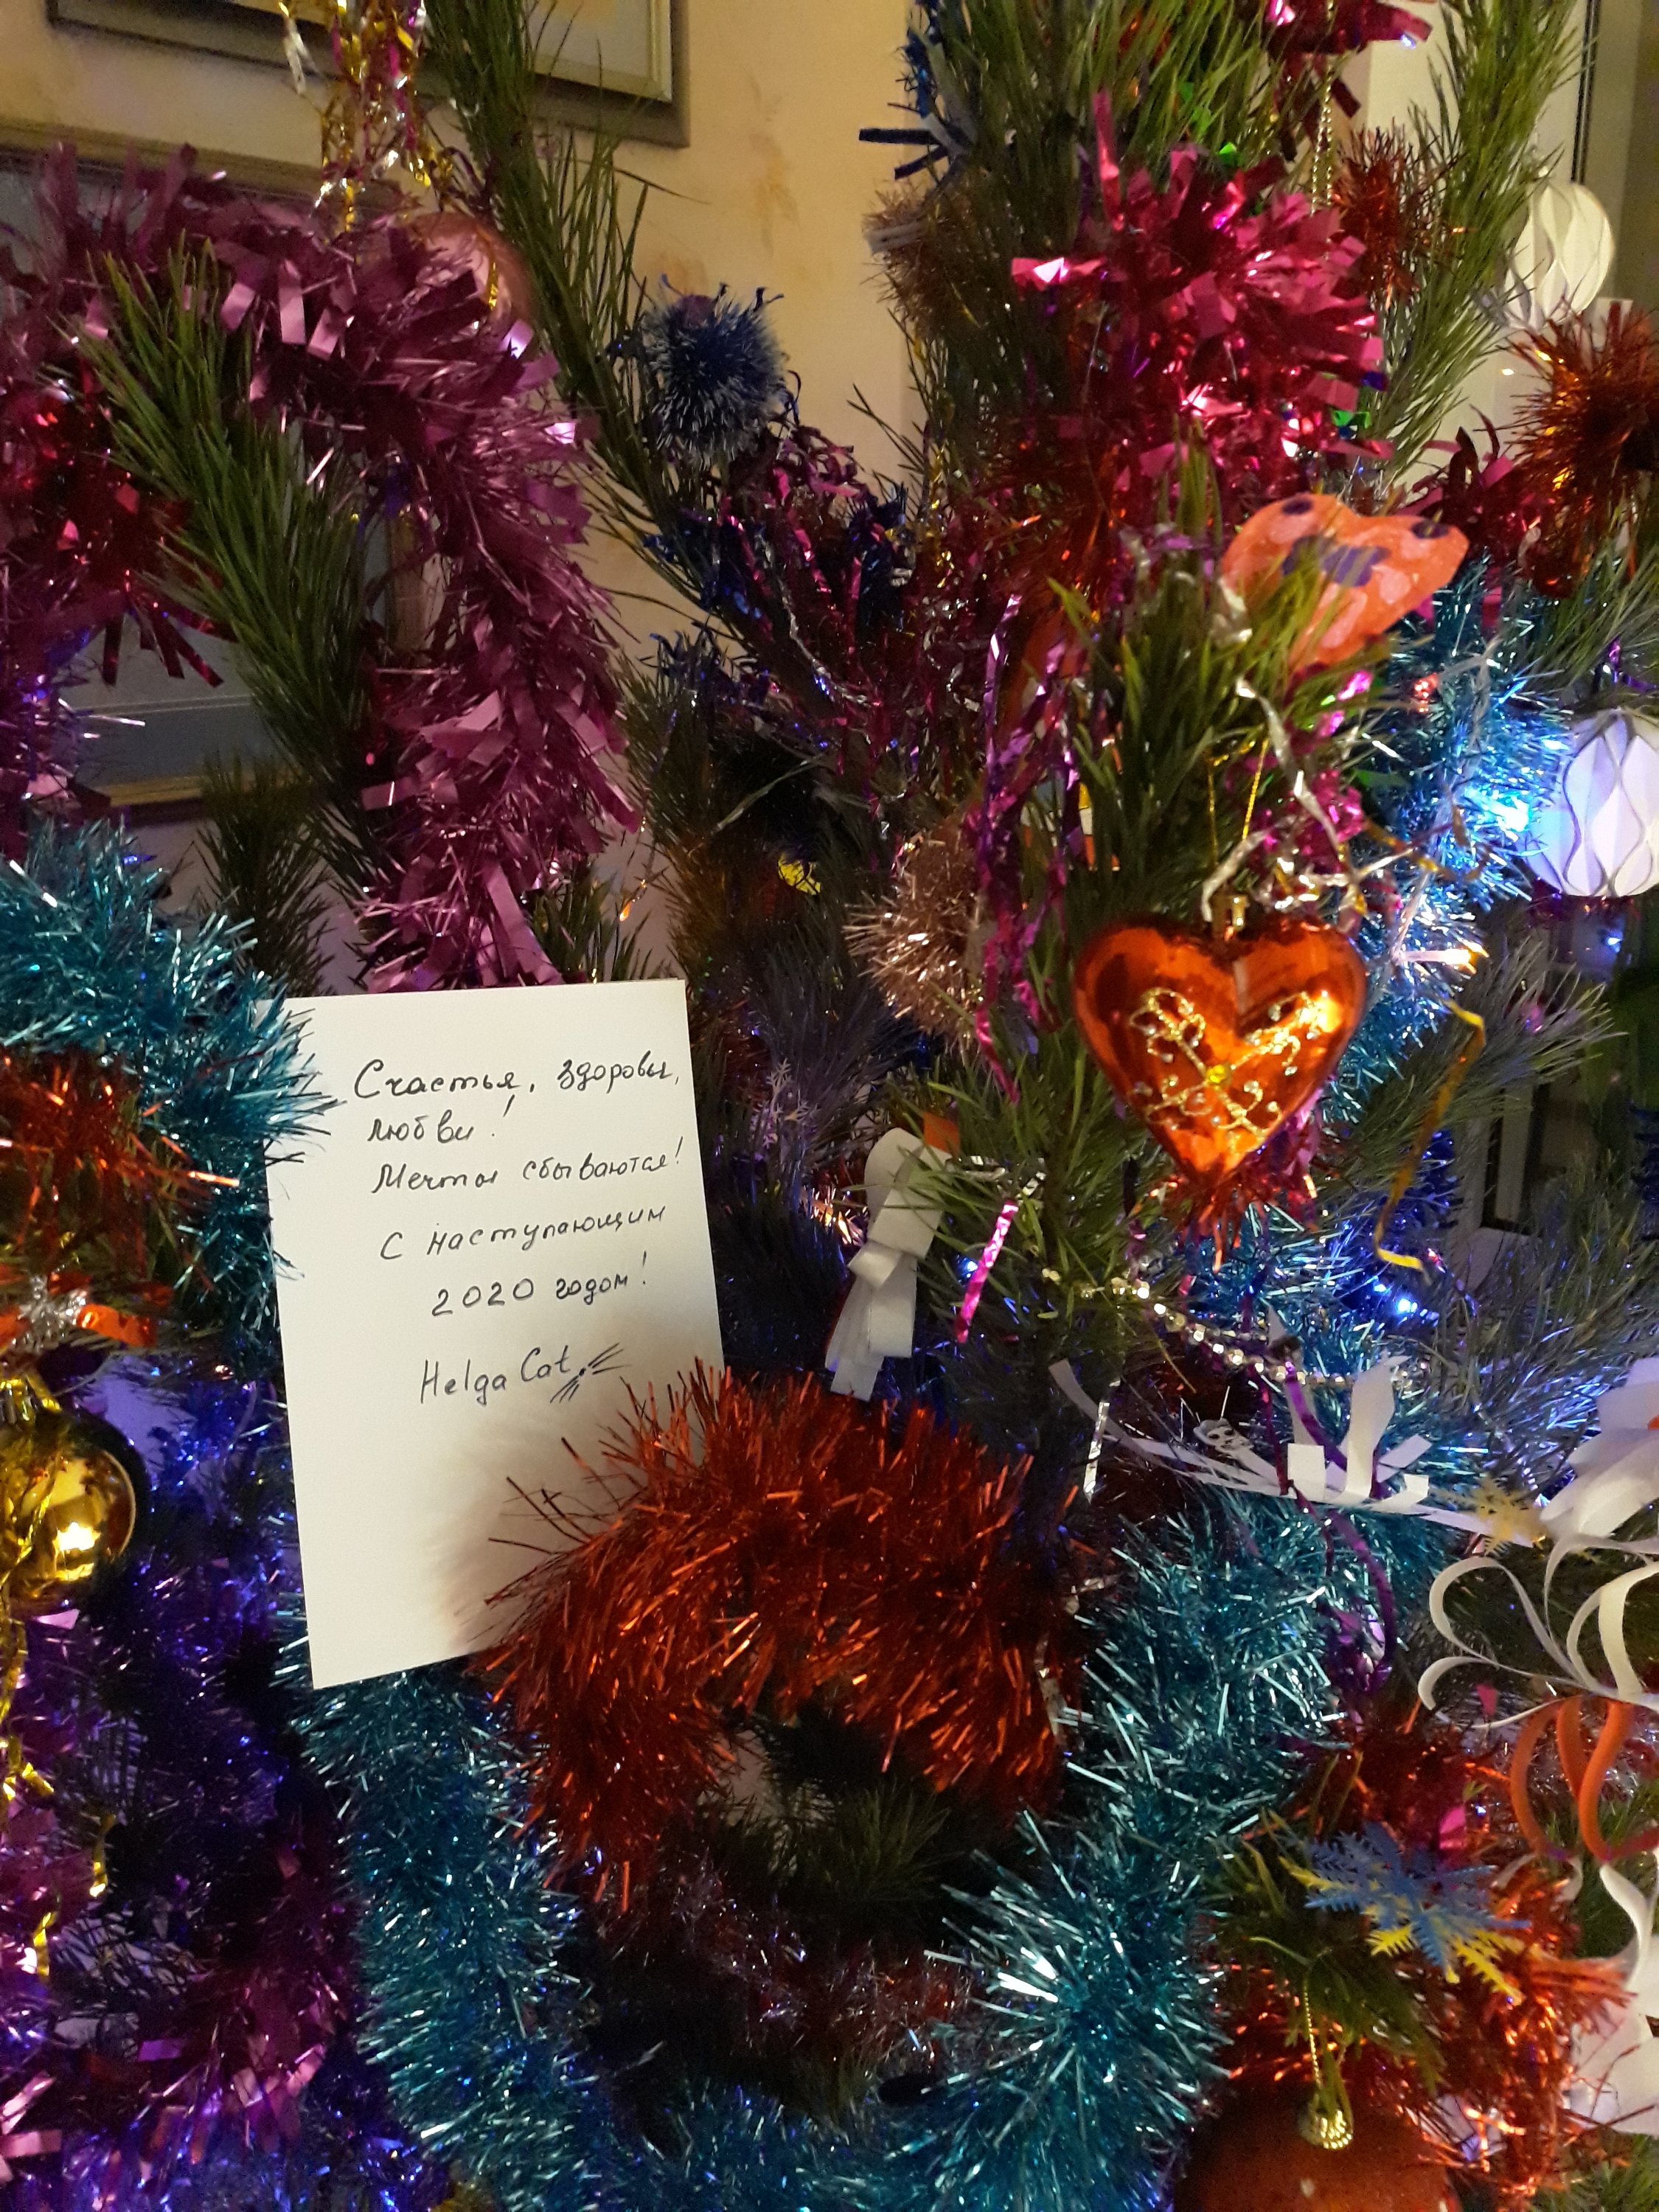 Счастья, здоровья,
любви!
Мечты сбываются!
С наступающим
2020 годом!
Helga Cat